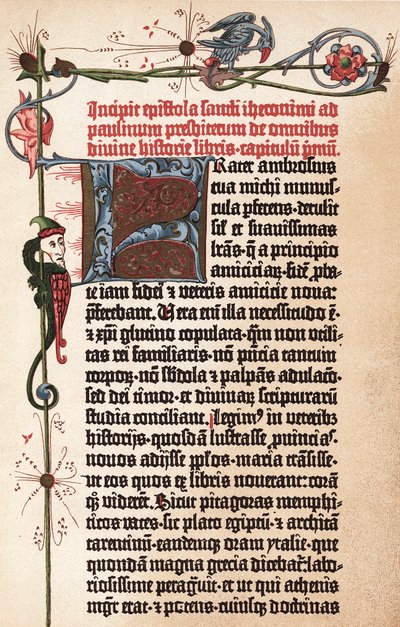 Incipit epistola sancti iheronimi ad
paulinum presbiterum de omnibus
divine historie libris. capitulū pmū.
Frater ambrosius
tua michi munus-
cula pferens. detulit
sil et suavissimas
lrās. q̄ a principio
amicicia⁊. fidē pba-
te iam fidei ⁊ veteris amicicie nova:
pferebant. Vera enī illa necessitudo ē.
⁊ xpi glutino copulata. qm non utili-
tas rei familiaris. nō pn̄cia tantum
corpo⁊. nō sbdola ⁊ palpās adulacō.
sed dei timor. et divina⁊ scripturarū
studia conciliant. Legimꝰ in veteribꝫ
historijs. quosdā lustrasse puincias.
novos adijsse pplos. maria trāsisse.
ut eos quos ex libris noverant: corā
q̄ꝫ viderēt. Sicut pitagoras memphi-
ticos vates. sic plato egiptū ⁊ architā
tarentinū. eandemqꝫ oram ytalie. que
quondā magna grecia dicebat̄: labo-
riosissime peragvit. et ut qui athenis
mgr̄ erat. ⁊ potens. cuiusqꝫ doctrinas